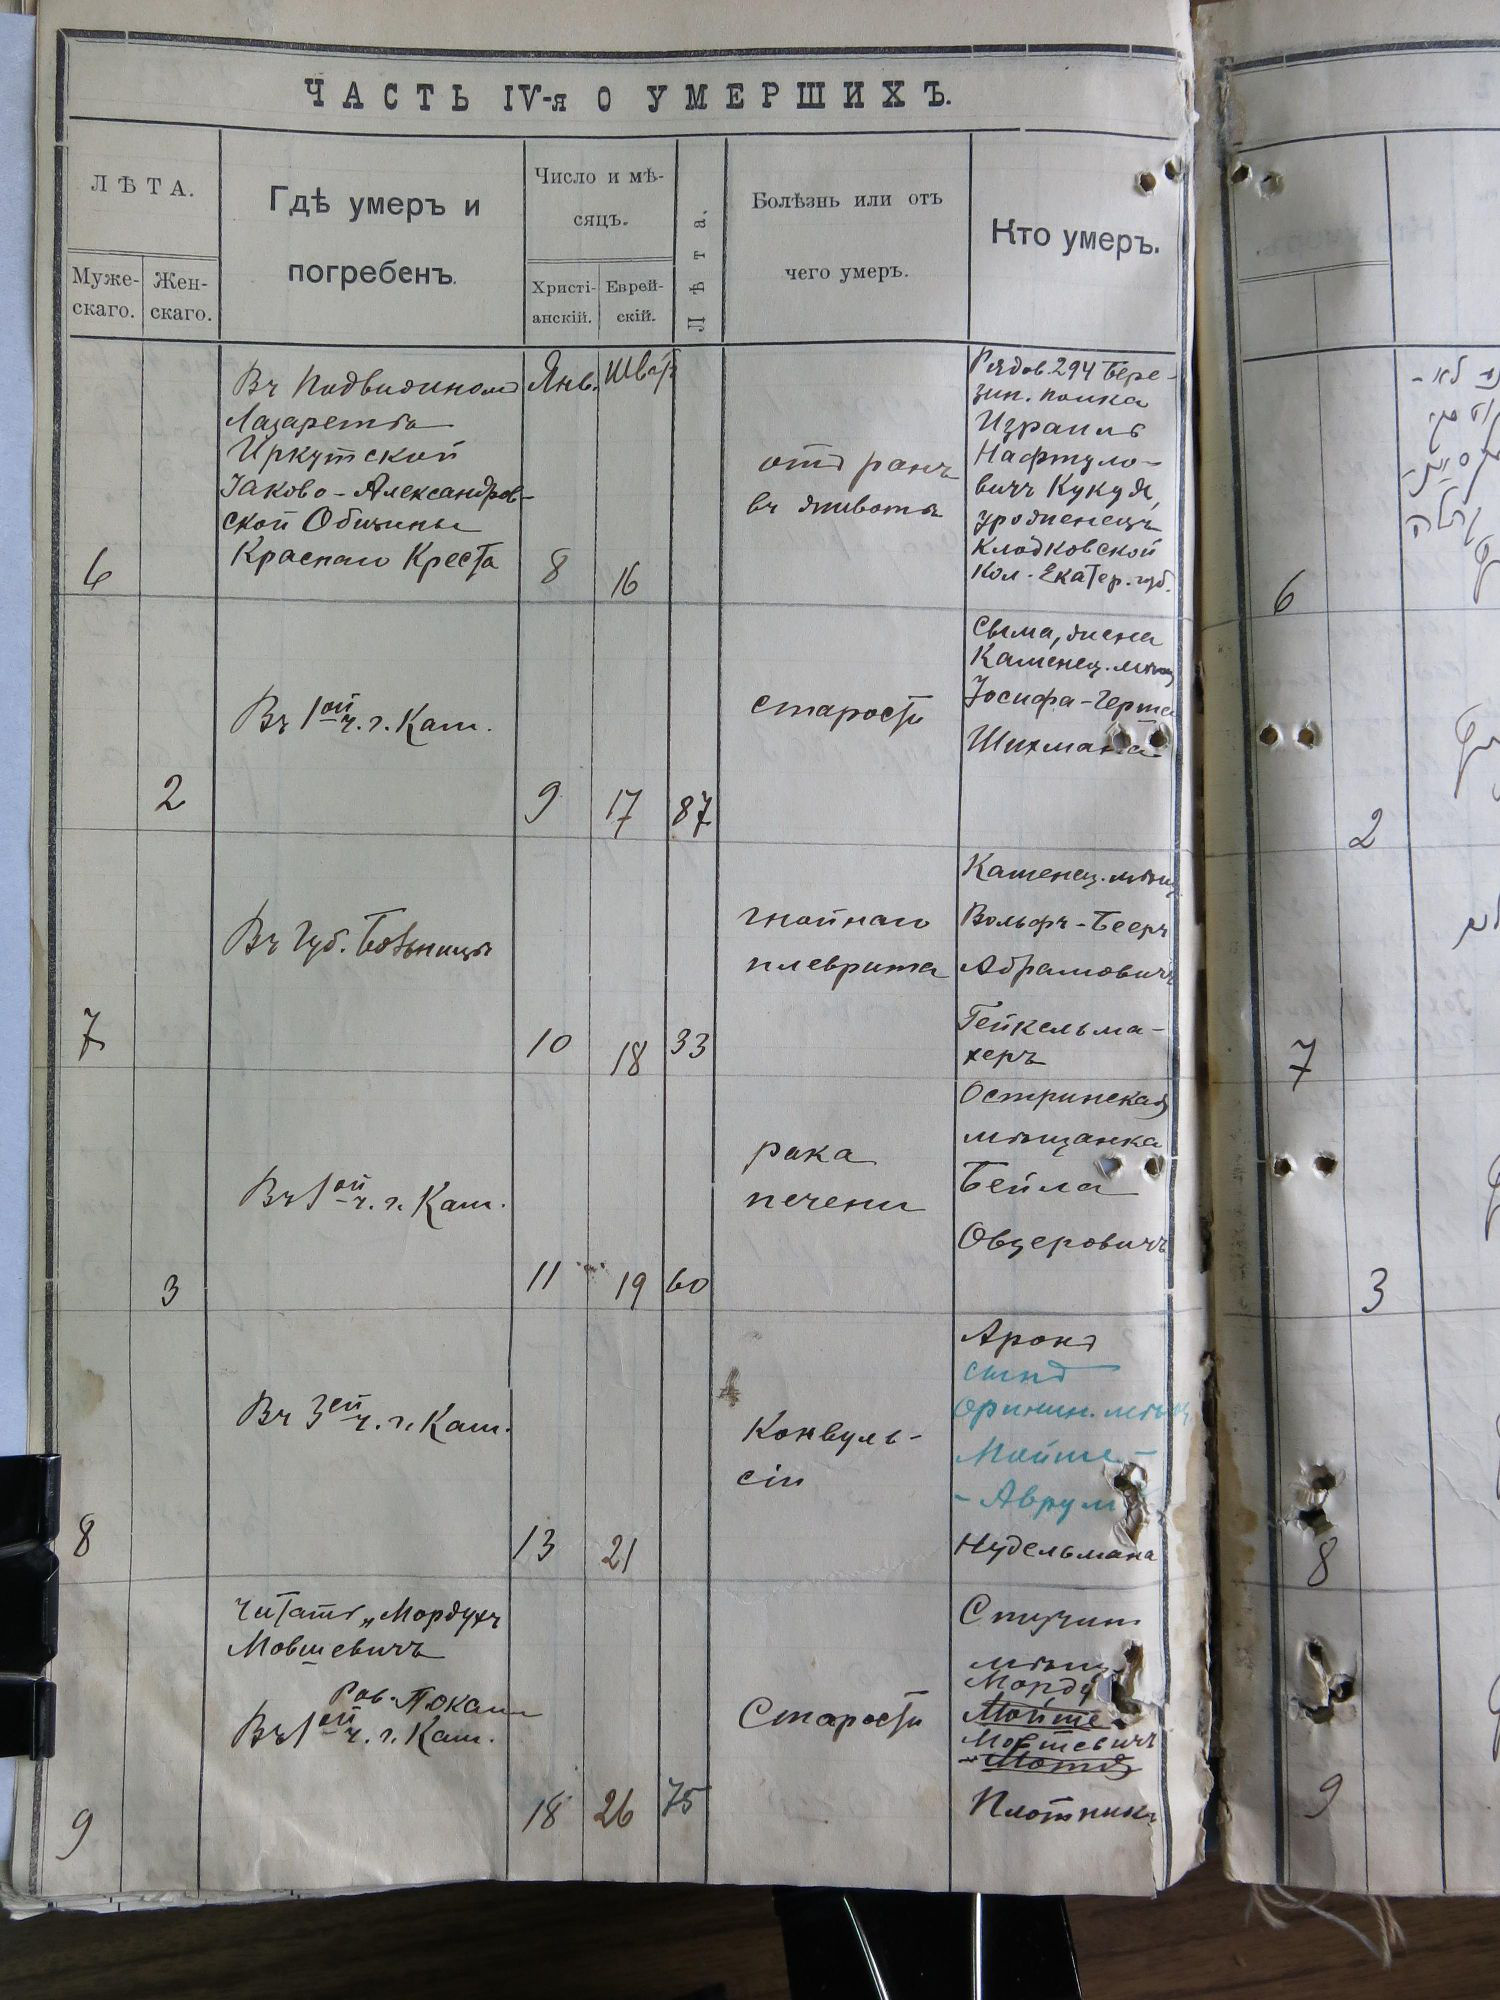 ЧАСТЬ IV-я О УМЕРШИХЪ.
ЛѢТА.
Муже-
скаго.
Жен-
скаго.
Гдѣ умеръ и
погребенъ.
Число и мѣ-
сяцъ.
Христі-
анскій.
Еврей-
скій.
Лѣта.
Болѣзнь или отъ
чего умеръ.
Кто умеръ.
Въ Подвижномъ
Лазаретѣ
Иркутской
Іаково-Александров-
ской Общины
Краснаго Креста
Янв.
Шват
отъ ранъ
въ животъ
Рядов. 294 Бере-
зин. полка
Израиль
Нафтуло-
вичъ Кукуя,
уроженецъ
Кол. Екатер. губ.
6
8
16
6
Въ 1ой ч. г. Кам.
старости
Сыма, жена
Каменец. мѣщ
Іосифа-Герша
Шихмана
2
9
17
87
2
Въ Губ. Больницѣ
гнойнаго
плеврита
Каменец. мѣщ.
Вольфъ-Бееръ
Абрамовичъ
Гейкельма-
херъ
7
10
18
33
7
Въ 1ой ч. г. Кам.
рака
печени
Остринская
мѣщанка
Бейла
Овцеровичъ
3
11
19
60
3
Въ 3ей ч. г. Кам.
Конвуль-
сіи
Аронъ
сынъ
Оринин. мѣщ
Мойше-
-Аврум
Нудельмана
8
13
21
8
Читать „Мордухъ
Мовшевичъ
Рав. Покам
Въ 1ой ч. г. Кам.
Старости
мѣщ.
Морду
Мойше
Мовшевичъ
Плотникъ
9
18
26
75
9